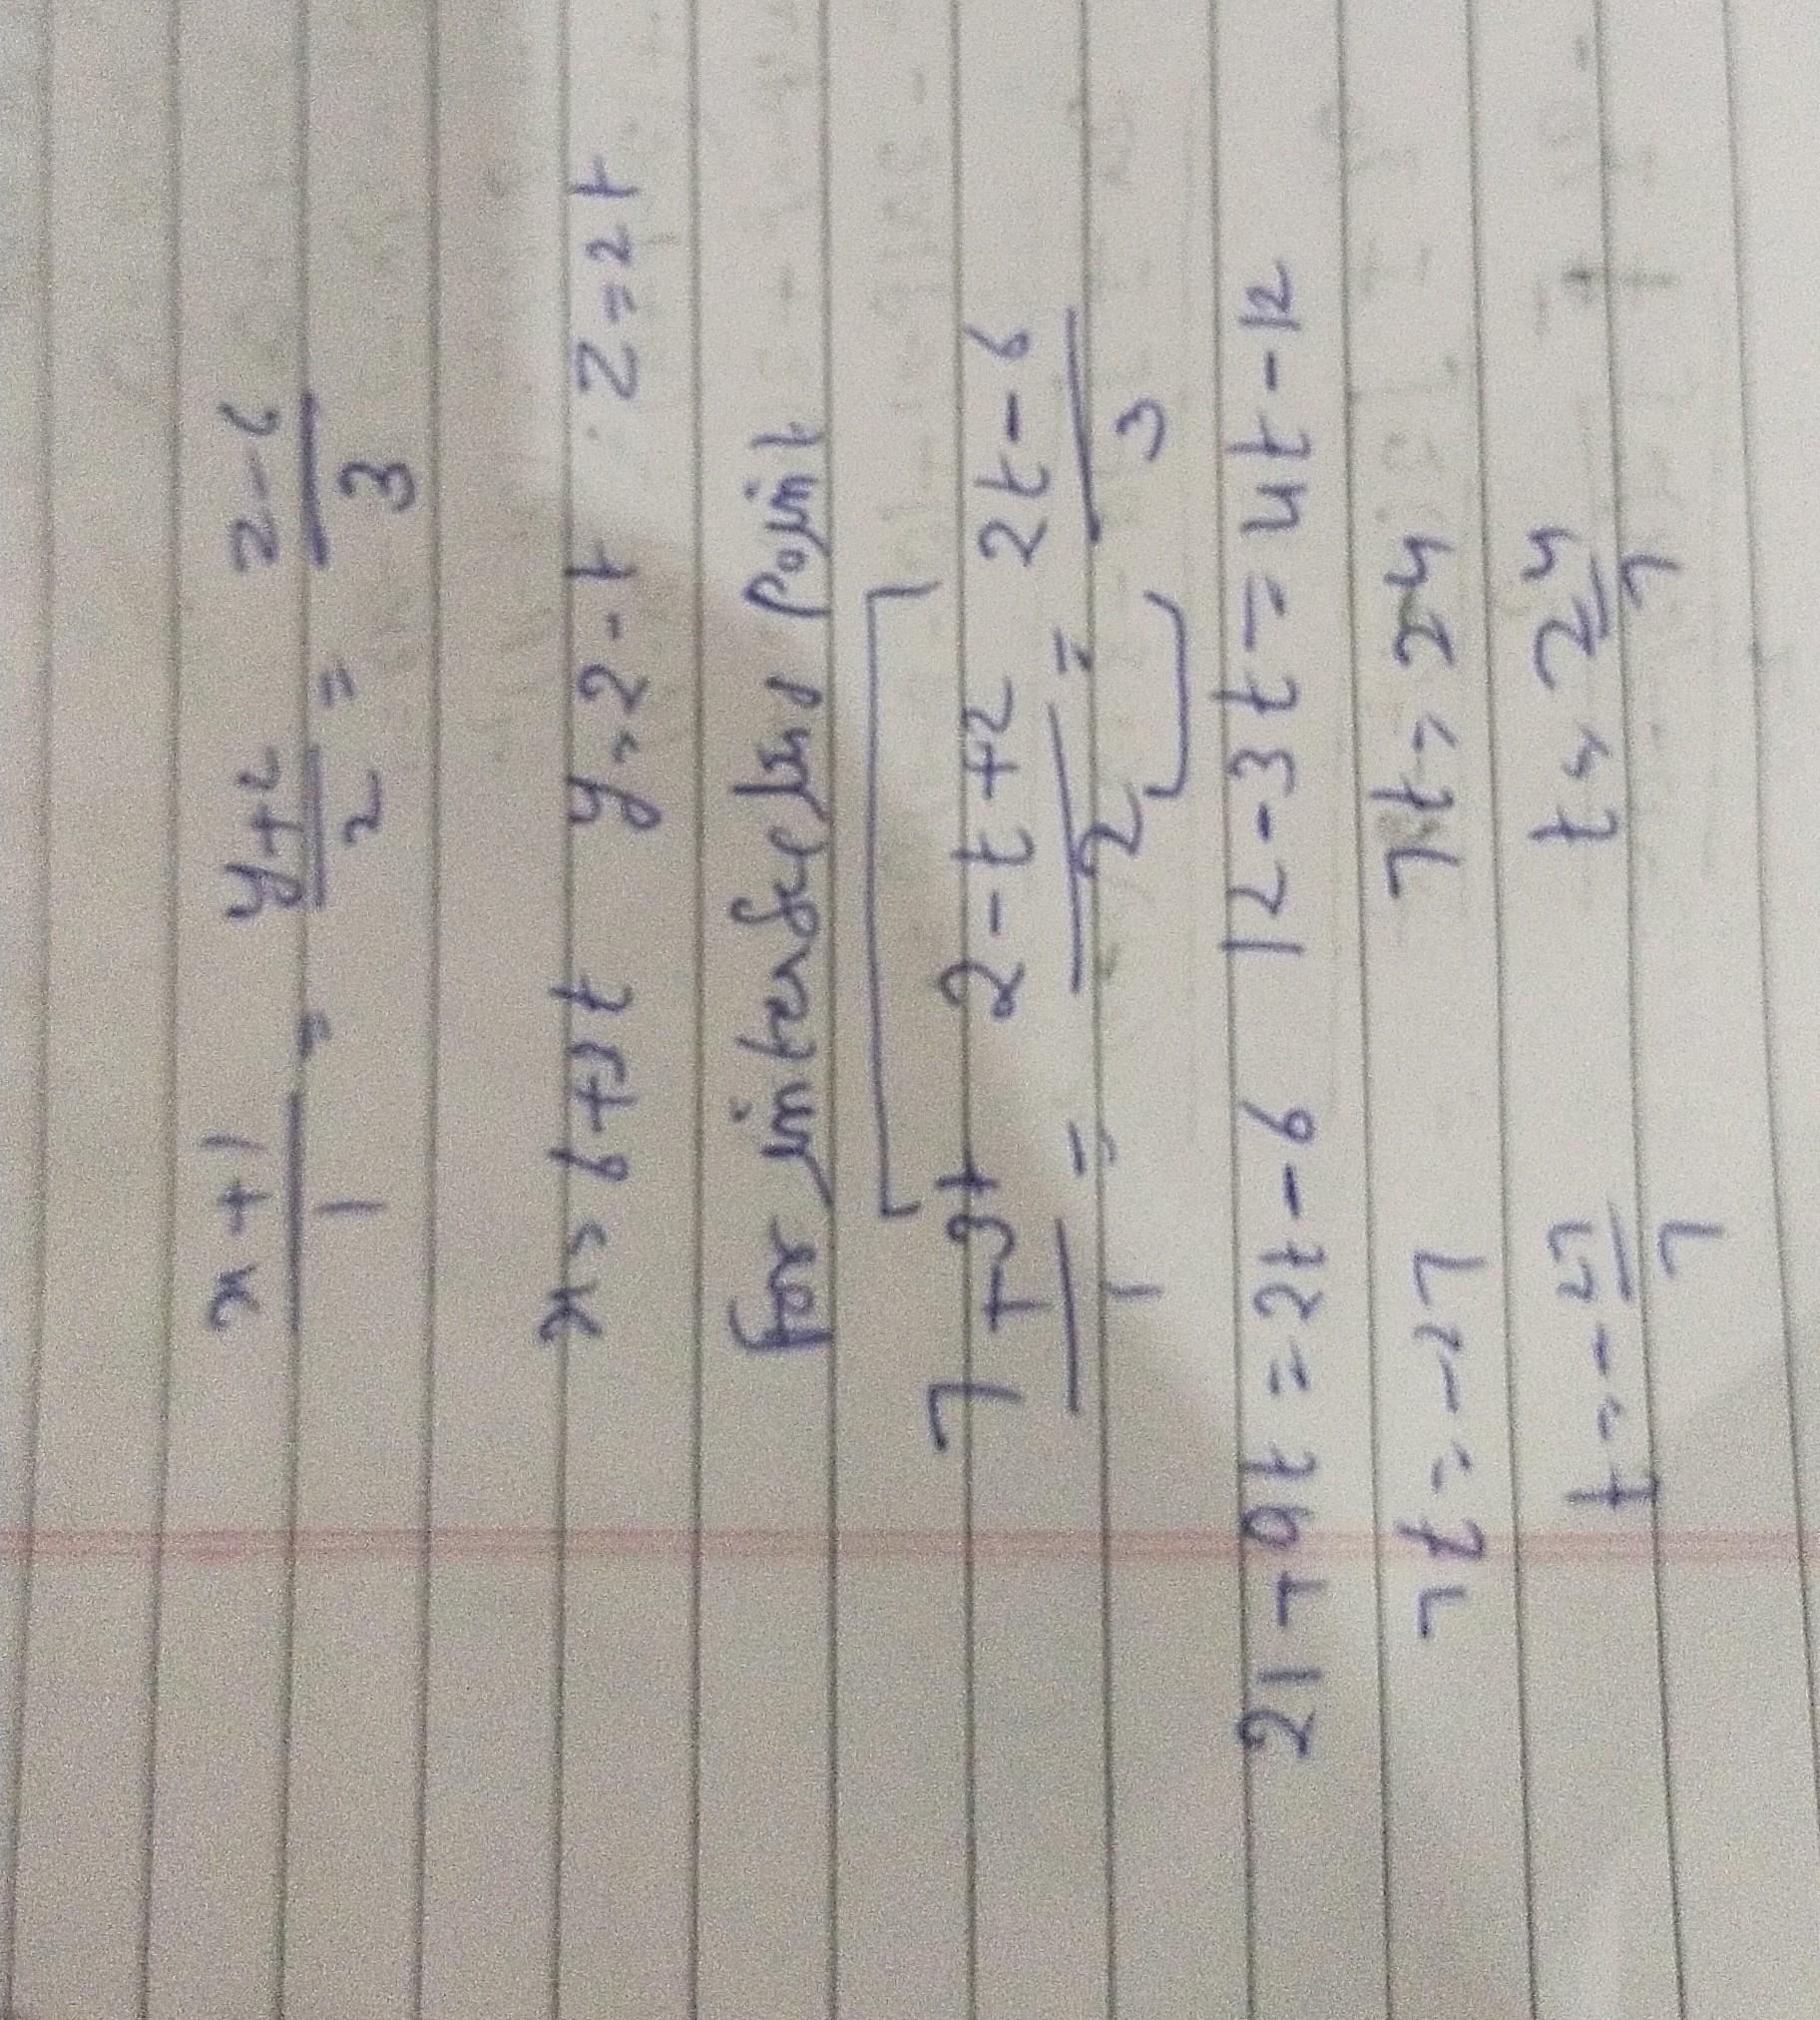 x+1/1 = y+2/2 = z-6/3
x = 6+3t y = 2-t z = 2t
for intersecting point
7+3t/1 = 2-t+2/2 = 2t-6/3
21+9t = 2t-6 12-3t = 4t-12
7t = -27 7t = 24
t = -27/7 t = 24/7